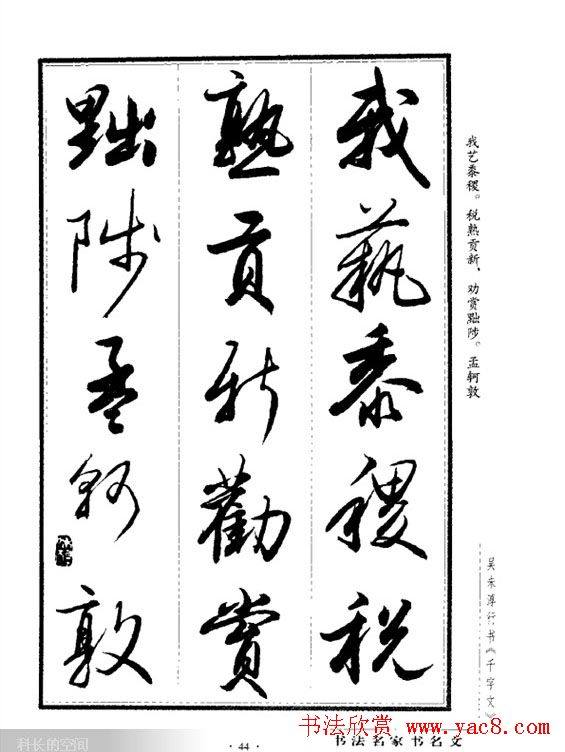 我艺黍稷。税熟贡新、劝赏黜陟。孟轲敦
吴未淳行书《千字文》
我蓺黍稷税
熟貢新勸賞
黜陟孟軻敦
书法欣赏 www.yac8.com
科长的空间
· 44 ·
书法名家书名文